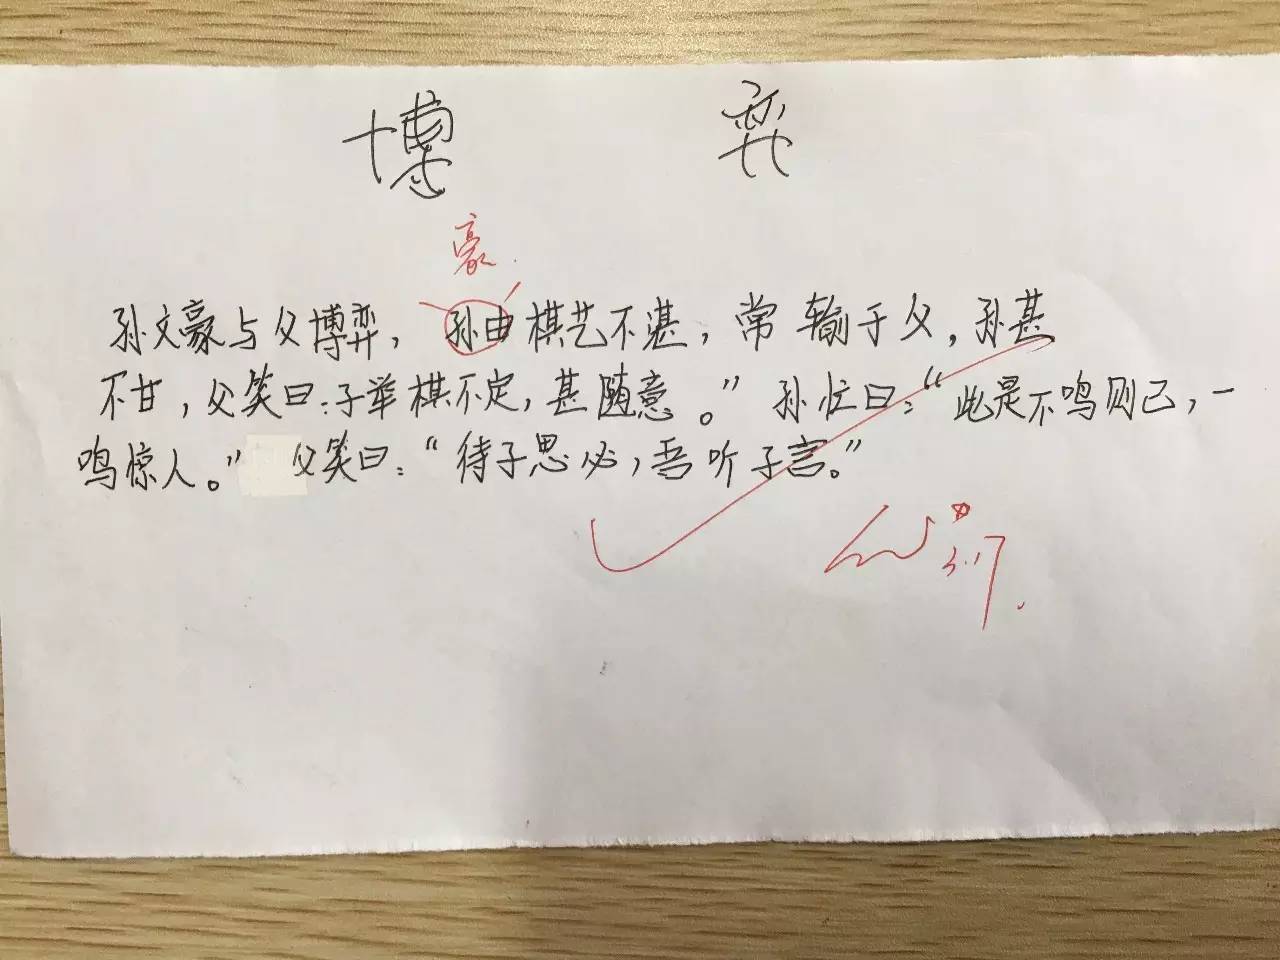 博 弈
豪
孙文豪与父博弈，孙由棋艺不湛，常输于父，孙甚
不甘，父笑曰：子举棋不定，甚随意。”孙忙曰：“此是不鸣则已，一
鸣惊人。”父笑曰：“待子思必，吾听子言。”
3.17